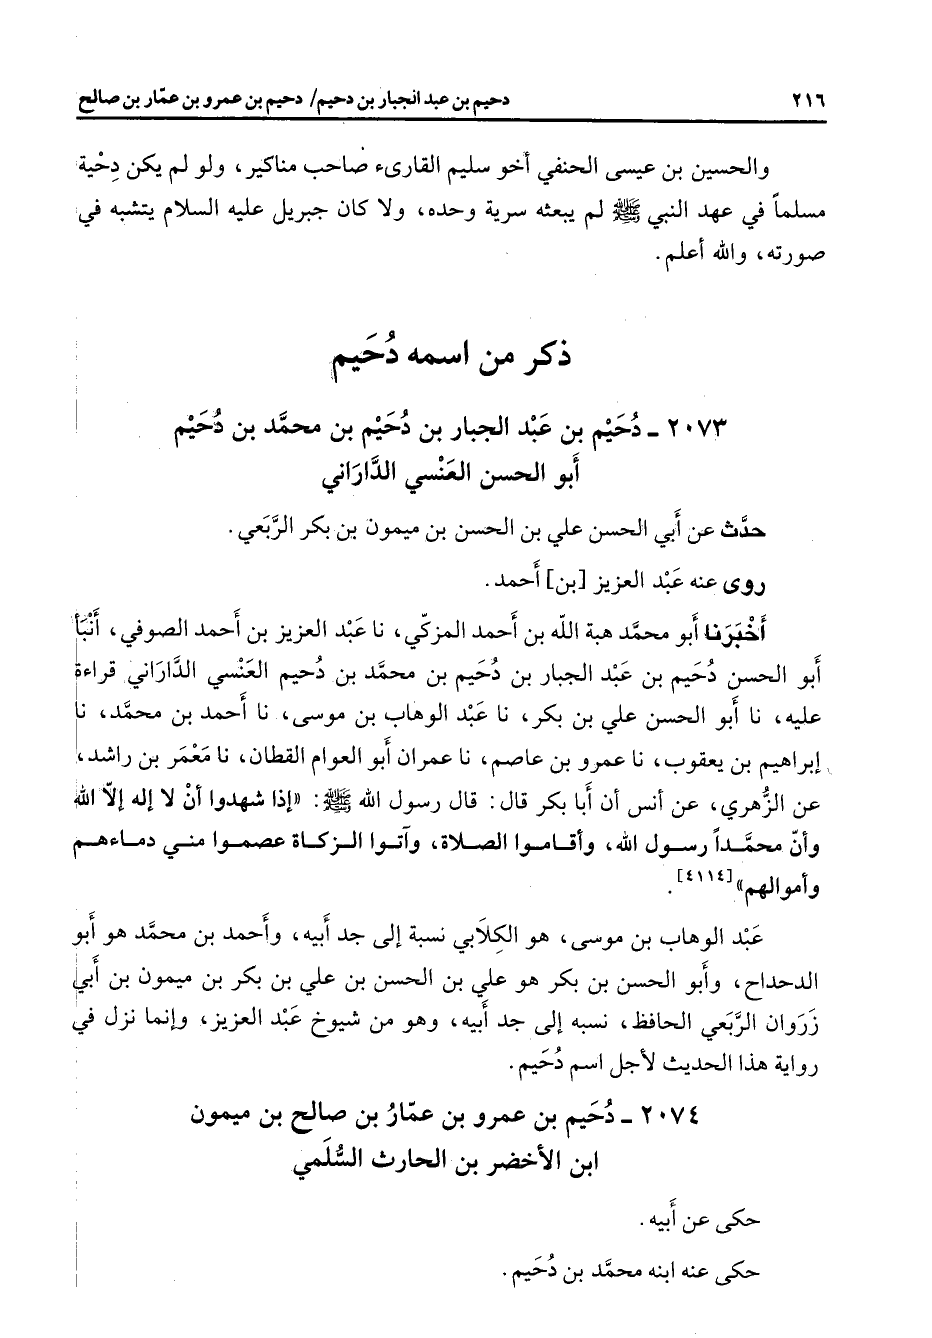 ٢١٦ دحيم بن عبد الجبار بن دحيم/ دحيم بن عمرو بن عمّار بن صالح
والحسين بن عيسى الحنفي أخو سليم القارىء صاحب مناكير، ولو لم يكن دِحْية
مسلماً في عهد النبي ﷺ لم يبعثه سرية وحده، ولا كان جبريل عليه السلام يتشبه في
صورته، والله أعلم.
ذكر من اسمه دُحَيم
٢٠٧٣ ـ دُحَيْم بن عَبْد الجبار بن دُحَيْم بن محمَّد بن دُحَيْم
أَبو الحسن العَنْسي الدَّارَاني
حدَّث عن أَبي الحسن علي بن الحسن بن ميمون بن بكر الرَّبَعي.
روى عنه عَبْد العزيز [بن] أَحمد.
أَخْبَرَنا أَبو محمَّد هبة اللّه بن أَحمد المزكّي، نا عَبْد العزيز بن أَحمد الصوفي، أَنْبَأ
أَبو الحسن دُحَيم بن عَبْد الجبار بن دُحَيم بن محمَّد بن دُحيم العَنْسي الدَّاراني قراءة
عليه، نا أَبو الحسن علي بن بكر، نا عَبْد الوهاب بن موسى، نا أَحمد بن محمَّد، نا
إبراهيم بن يعقوب، نا عمرو بن عاصم، نا عمران أَبو العوام القطان، نا مَعْمَر بن راشد،
عن الزُّهري، عن أنس أن أَبا بكر قال: قال رسول الله ﷺ: «إذا شهدوا أنْ لا إله إلاّ الله
وأنّ محمَّداً رسول الله، وأقاموا الصلاة، وآتوا الزكاة عصموا مني دماءهم
وأموالهم»[٤١١٤].
عَبْد الوهاب بن موسى، هو الكِلَابي نسبة إلى جد أَبيه، وأَحمد بن محمَّد هو أَبو
الدحداح، وأَبو الحسن بن بكر هو علي بن الحسن بن علي بن بكر بن ميمون بن أَبي
زَرَوان الرَّبَعي الحافظ، نسبه إلى جد أَبيه، وهو من شيوخ عَبْد العزيز، وإنما نزل في
رواية هذا الحديث لأجل اسم دُحَيم.
٢٠٧٤ ـ دُحَيم بن عمرو بن عمّارُ بن صالح بن ميمون
ابن الأخضر بن الحارث السُّلَمي
حكى عن أَبيه.
حكى عنه ابنه محمَّد بن دُحَيم.